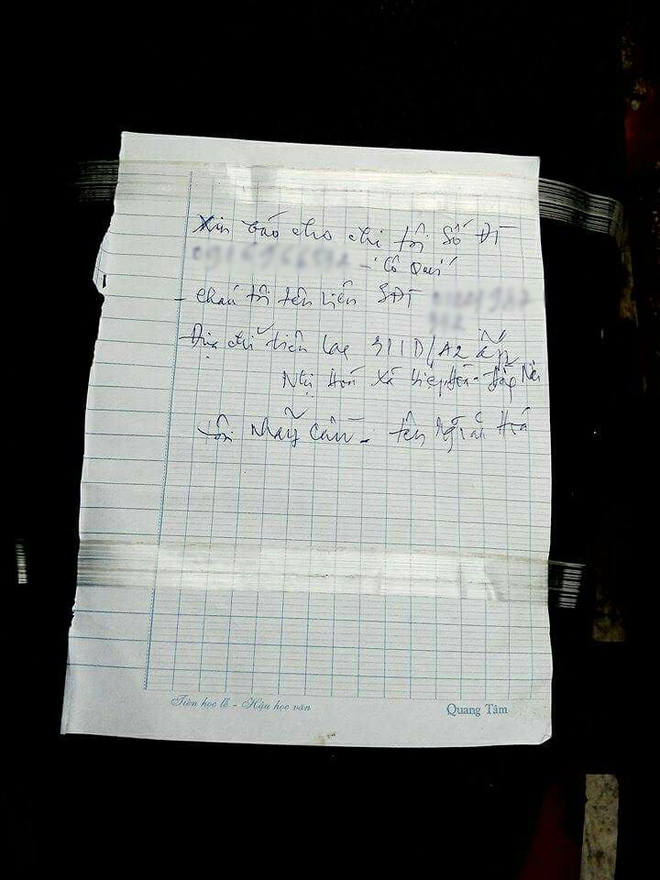 Xin báo cho chị tôi Số ĐT
- Cô Quí
- Cháu tôi tên Liên SĐT
Địa chỉ liên lạc 311D/A2 ấp
Nhị Hoà Xã Hiệp Hoà - Đồng Nai
tôi nhảy cầu - tên
Tiên học lễ - Hậu học văn
Quang Tâm